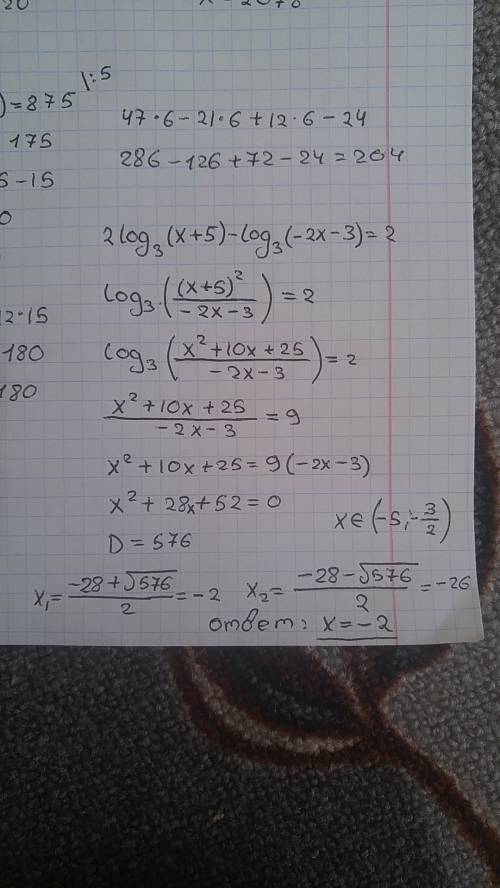 ) = 875 |:5
175
- 15
12·15
180
180
47·6 - 21·6 + 12·6 - 24
286 - 126 + 72 - 24 = 204
2log₃(x+5) - log₃(-2x-3) = 2
log₃·((x+5)²/(-2x-3)) = 2
log₃((x²+10x+25)/(-2x-3)) = 2
(x²+10x+25)/(-2x-3) = 9
x²+10x+25 = 9(-2x-3)
x²+28x+52 = 0
x∈(-5;-3/2)
D = 576
x₁ = (-28+√576)/2 = -2 x₂ = (-28-√576)/2 = -26
ответ: x = -2